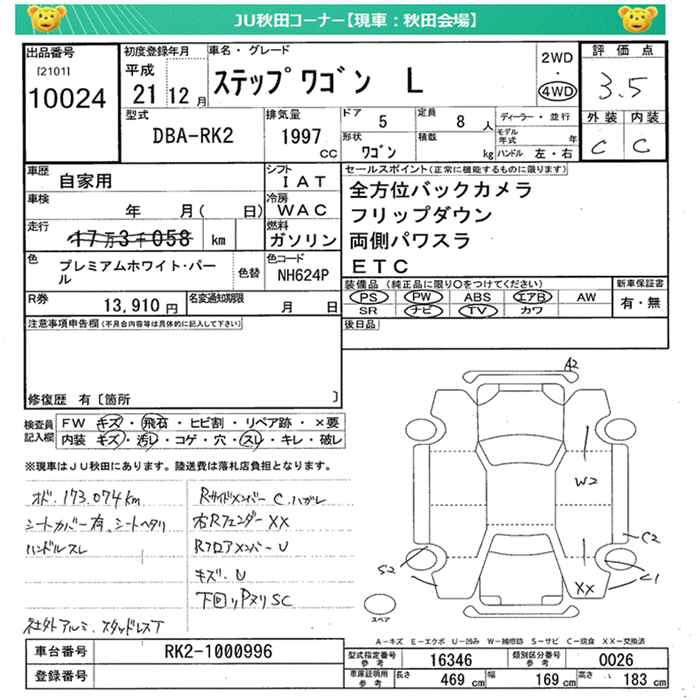 JU秋田コーナー【現車：秋田会場】
出品番号
[2101]
10024
初度登録年月
平成
21 12月
車名・グレード
ステップワゴン L
2WD
・
4WD
評価点
3.5
外装 内装
C C
型式
DBA-RK2
排気量
1997
CC
ドア
5
定員
8人
形状
ワゴン
積載
kg
ディーラー・並行
モデル年式 年
ハンドル 左・右
車歴
自家用
シフト
IAT
車検
年 月( 日)
冷房
WAC
走行
17万3千058 km
燃料
ガソリン
セールスポイント(正常に機能するものに限ります)
全方位バックカメラ
フリップダウン
両側パワスラ
ETC
色
プレミアムホワイト・パール
色替
色コード
NH624P
装備品 (純正品に限り○をつけてください)
PS PW ABS エアB AW
SR ナビ TV カワ
新車保証書
有・無
R券
13,910円
名変通知期限
月 日
後日品
注意事項申告欄(不具合内容等は具体的に記入して下さい)
修復歴 有〔箇所 〕
検査員記入欄
FW キズ・飛石・ヒビ割・リペア跡・×要
内装 キズ・汚レ・コゲ・穴・スレ・キレ・破レ
※現車はJU秋田にあります。陸送費は落札店負担となります。
オド.173,074km
シートカバー有、シートヘタリ
ハンドルスレ
社外アルミ.スタッドレスT
Rサイドメンバー C.ハガレ
右Rフェンダー XX
Rフロアメンバー U
キズ.U
下回りPヌリSC
A2
W2
C2
S2
C1
XX
スペア
A－キズ E－エクボ U－凹み W－補修跡 S－サビ C－腐食 XX－交換済
車台番号
RK2-1000996
登録番号
型式指定番号
参考
16346
類別区分番号
参考
0026
車庫証明用
参考
長さ 469 cm
幅 169 cm
高さ 183 cm